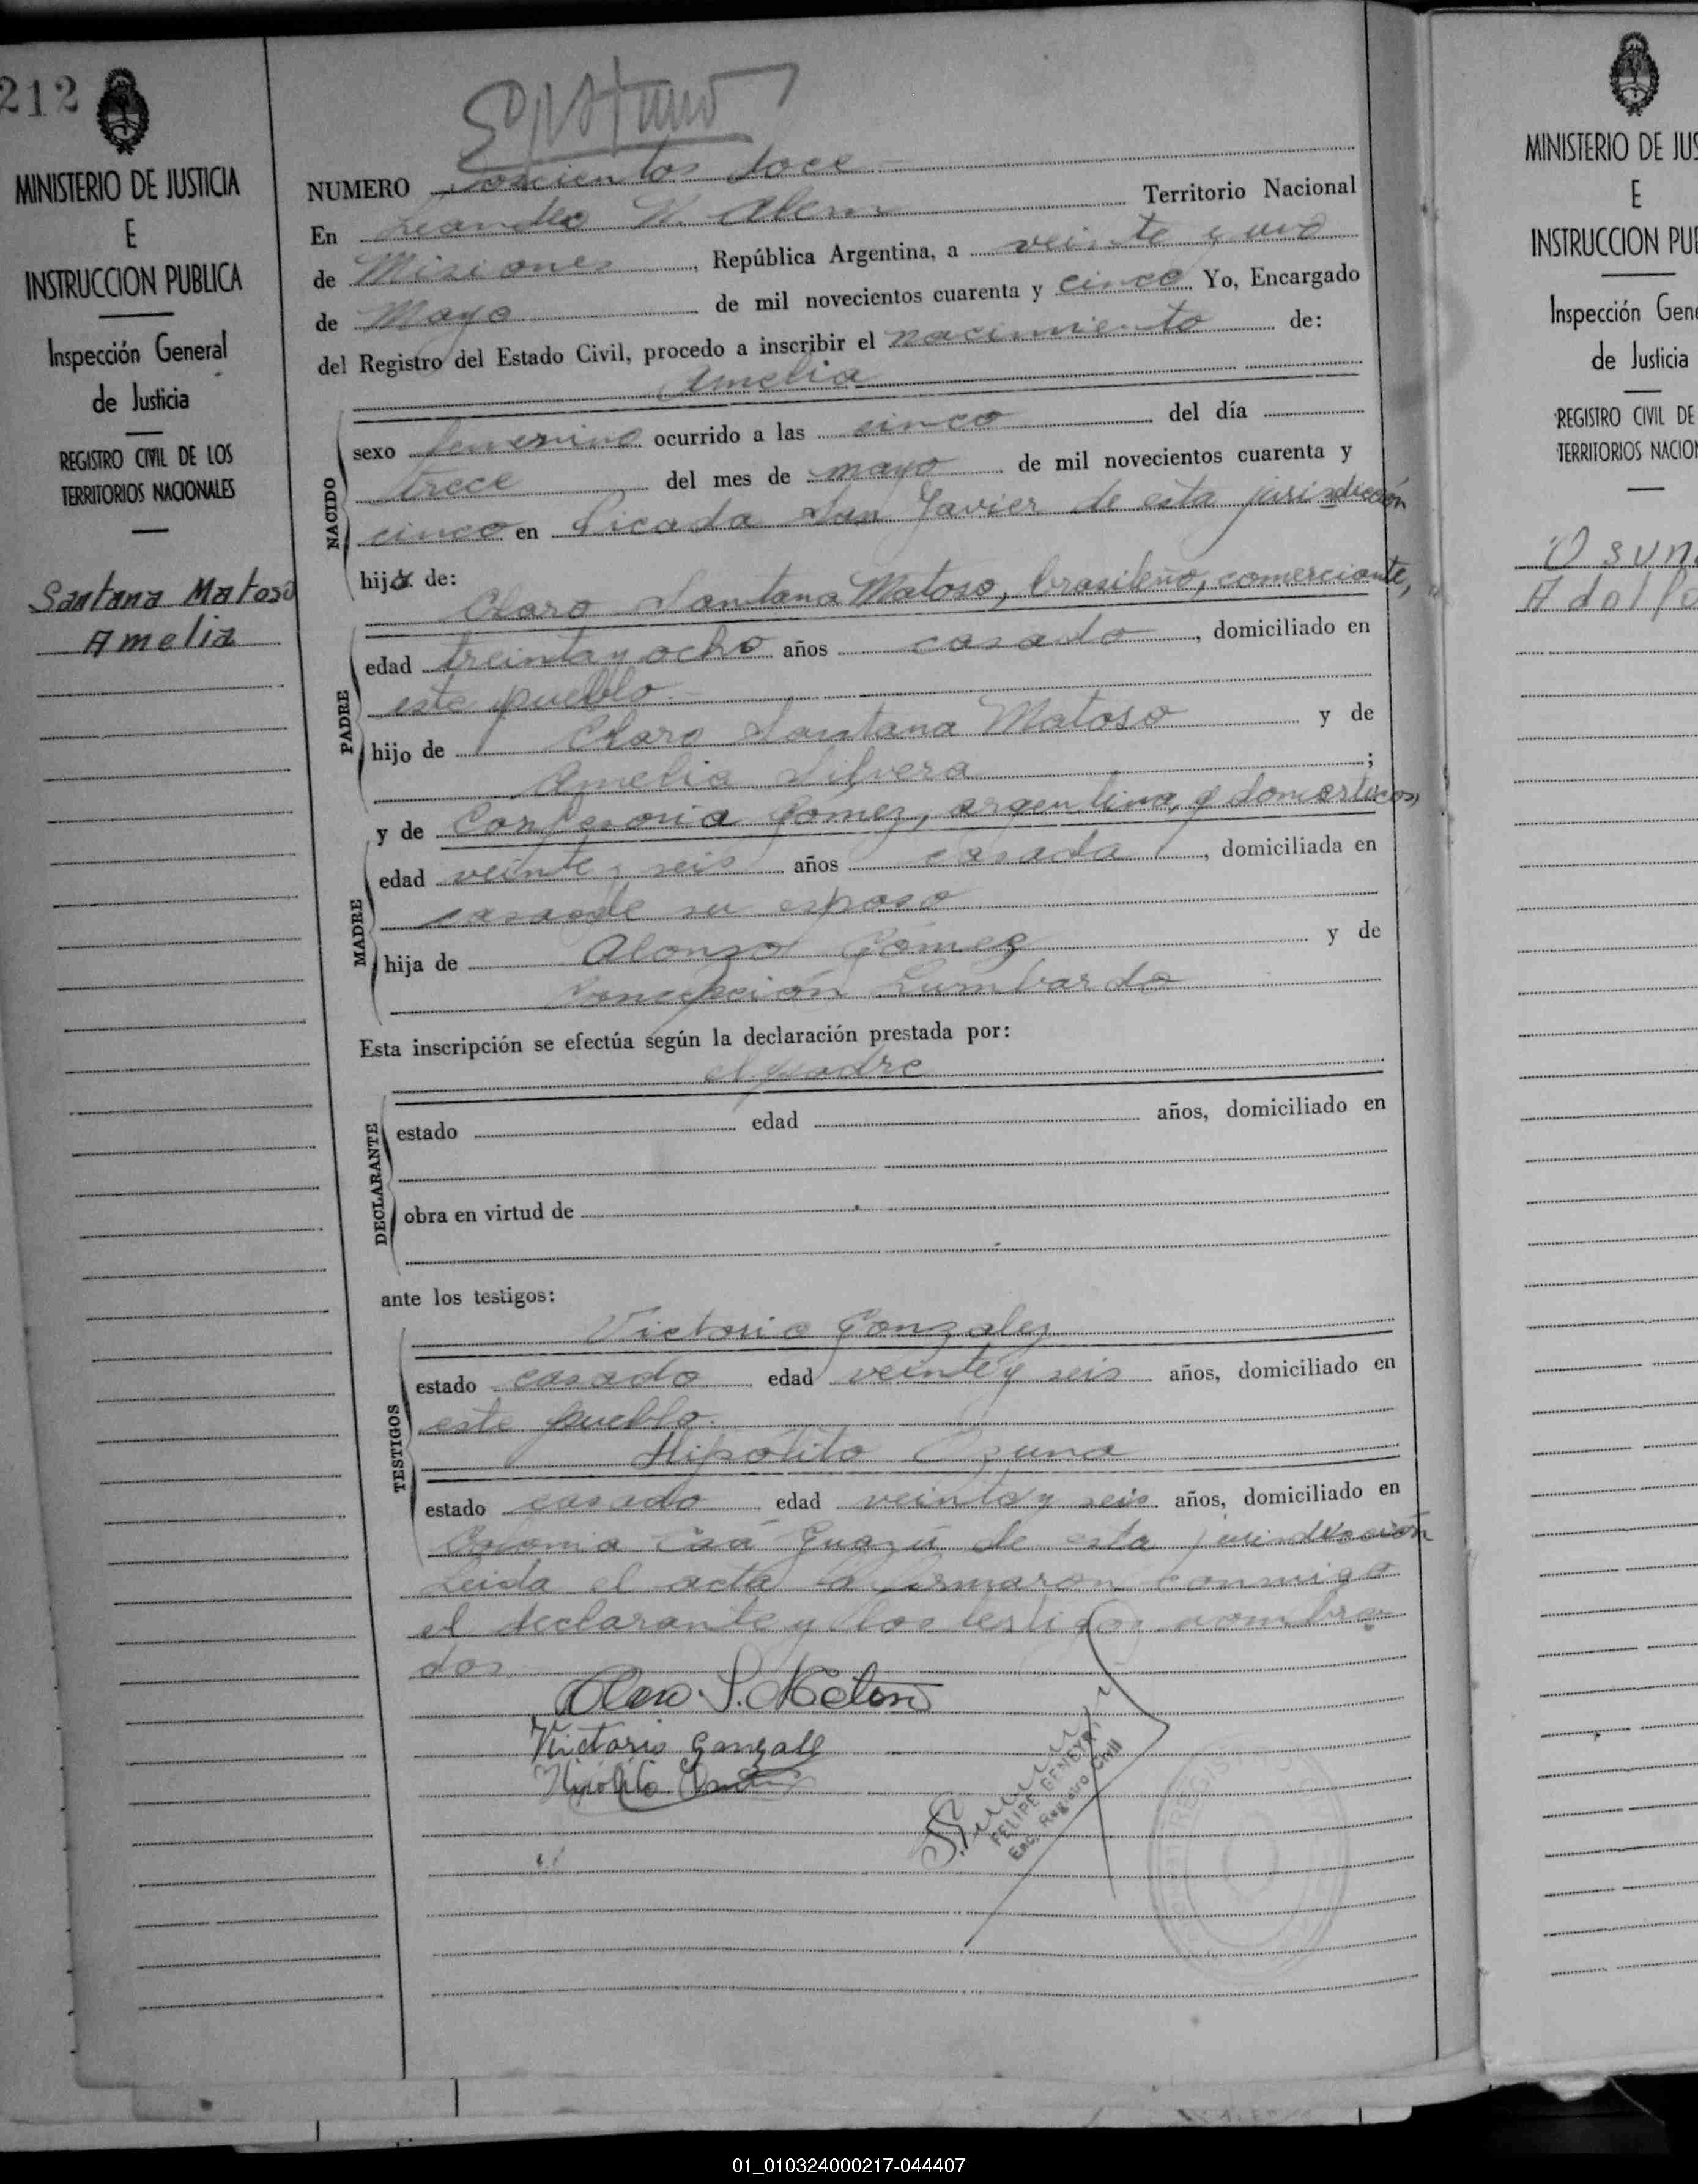 212
MINISTERIO DE JUSTICIA
E
INSTRUCCION PUBLICA
Inspección General
de Justicia
REGISTRO CIVIL DE LOS
TERRITORIOS NACIONALES
Santana Matoso
Amelia
NUMERO doscientos doce
En Leandro N. Alem Territorio Nacional
de Misiones, República Argentina, a veinte y uno
de Mayo de mil novecientos cuarenta y cinco Yo, Encargado
del Registro del Estado Civil, procedo a inscribir el nacimiento de:
Amelia
NACIDO
sexo femenino ocurrido a las cinco del día
trece del mes de mayo de mil novecientos cuarenta y
cinco en Picada San Javier de esta jurisdicción
hija de:
PADRE
Claro Santana Matoso, brasileño, comerciante,
edad treinta y ocho años casado, domiciliado en
este pueblo.
hijo de Claro Santana Matoso y de
Amelia Silvera;
MADRE
y de Gómez, argentina,
edad veinte y seis años casada, domiciliada en
casa de su esposo
hija de Alonso Gómez y de
Concepción Lumbardo
Esta inscripción se efectúa según la declaración prestada por:
el padre
DECLARANTE
estado edad años, domiciliado en
obra en virtud de
ante los testigos:
TESTIGOS
Victorio Gonzalez
estado casado edad veinte y seis años, domiciliado en
este pueblo.
Hipolito Ozuna
estado casado edad veinte y seis años, domiciliado en
Colonia Caá Guazú de esta jurisdicción
Leida el acta la firmaron conmigo
el declarante y los testigos nombra-
dos.
Victorio Gonzalz
Hipólito
FELIPE GENEYRI
Enc. Registro Civil
MINISTERIO DE JUS
E
INSTRUCCION PU
Inspección Gen
de Justicia
REGISTRO CIVIL DE
TERRITORIOS NACIO
Osun
Adolfo
01_010324000217-044407